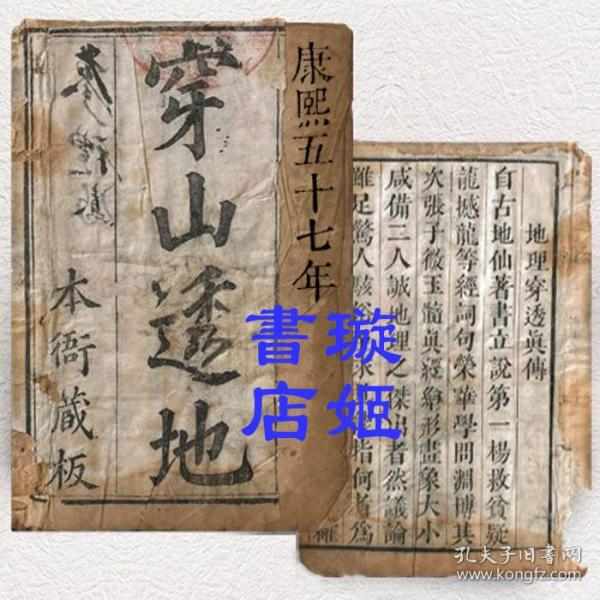 康熙五十七年
穿山透地
本衙藏板
璇姬
書店
地理穿透真傳
自古地仙著書立說第一楊救貧疑
龍撼龍等經詞句榮華學問淵博其
次張子微玉髓真經繪形畫象大小
咸備二人誠地理之傑出者然議論
雖足驚人駭
指何者為
孔夫子旧书网
www.kongfz.com